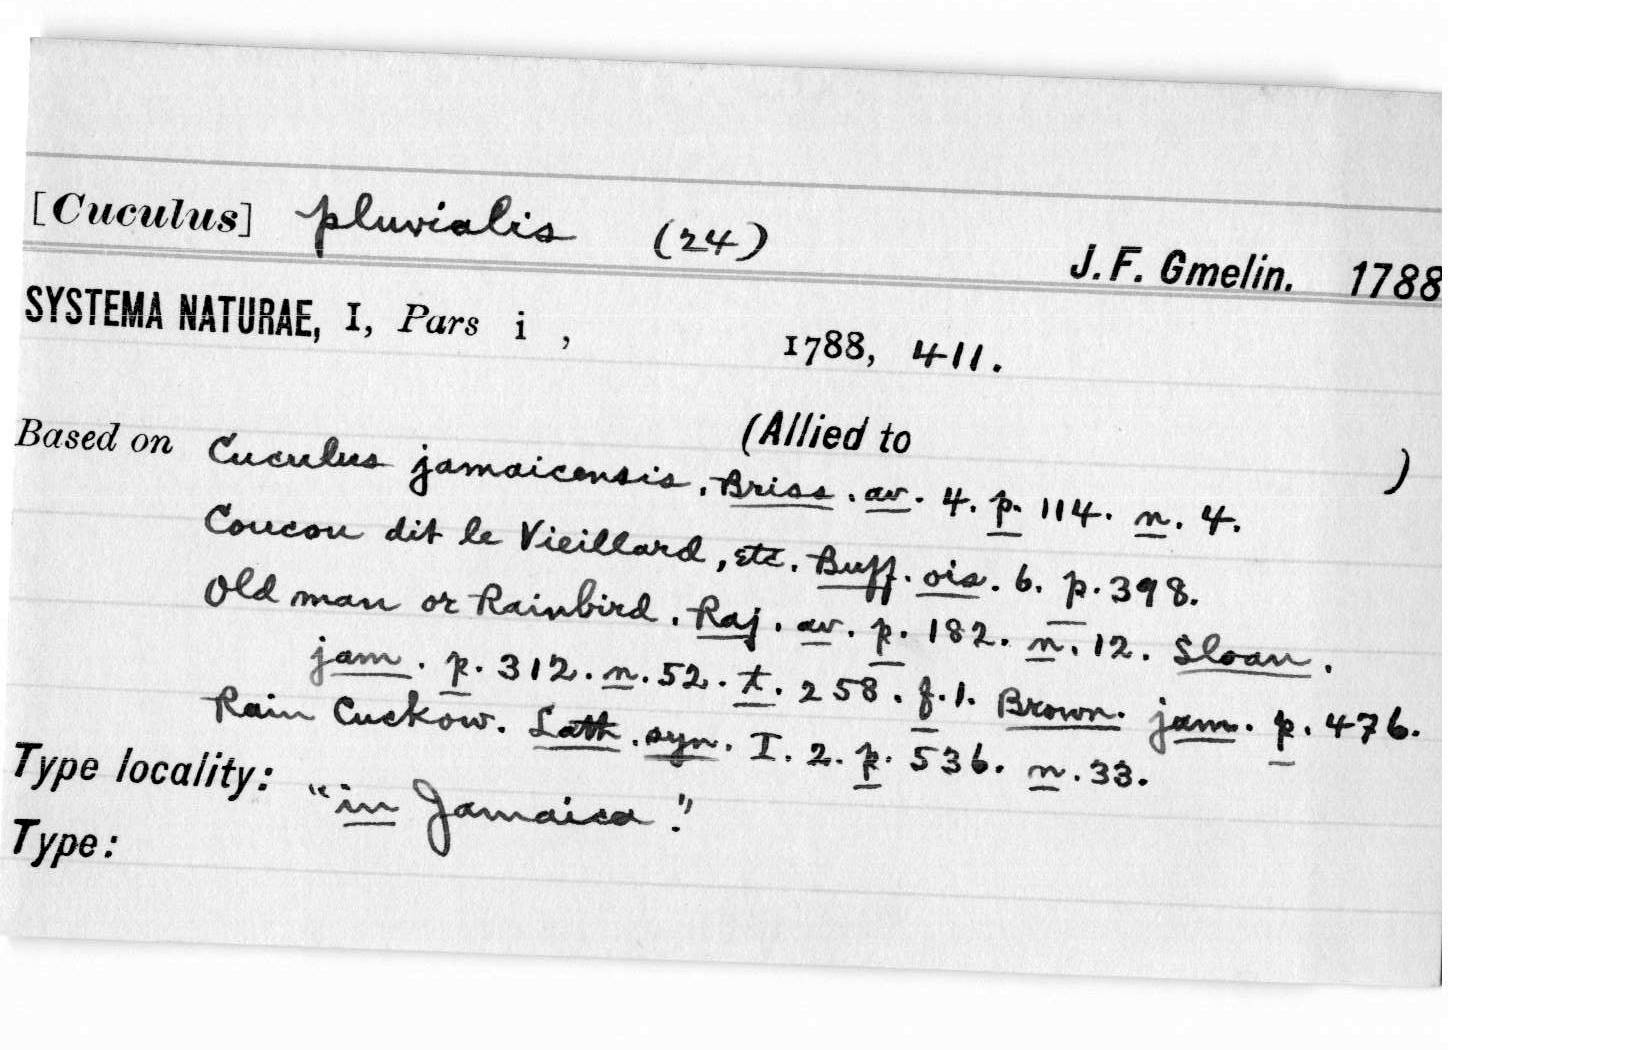 [Cuculus] pluvialis (24) J. F. Gmelin. 1788
SYSTEMA NATURAE, I, Pars i , 1788, 411.
(Allied to )
Based on Cuculus jamaicensis. Briss. av. 4. p. 114. n. 4.
Coucou dit le Vieillard, etc. Buff. ois. 6. p. 398.
Old man or Rainbird. Raj. av. p. 182. n. 12. Sloan.
jam. p. 312. n. 52. t. 258. f. 1. Brown. jam. p. 476.
Rain Cuckow. Lath. syn. I. 2. p. 536. n. 33.
Type locality: "in Jamaica."
Type: